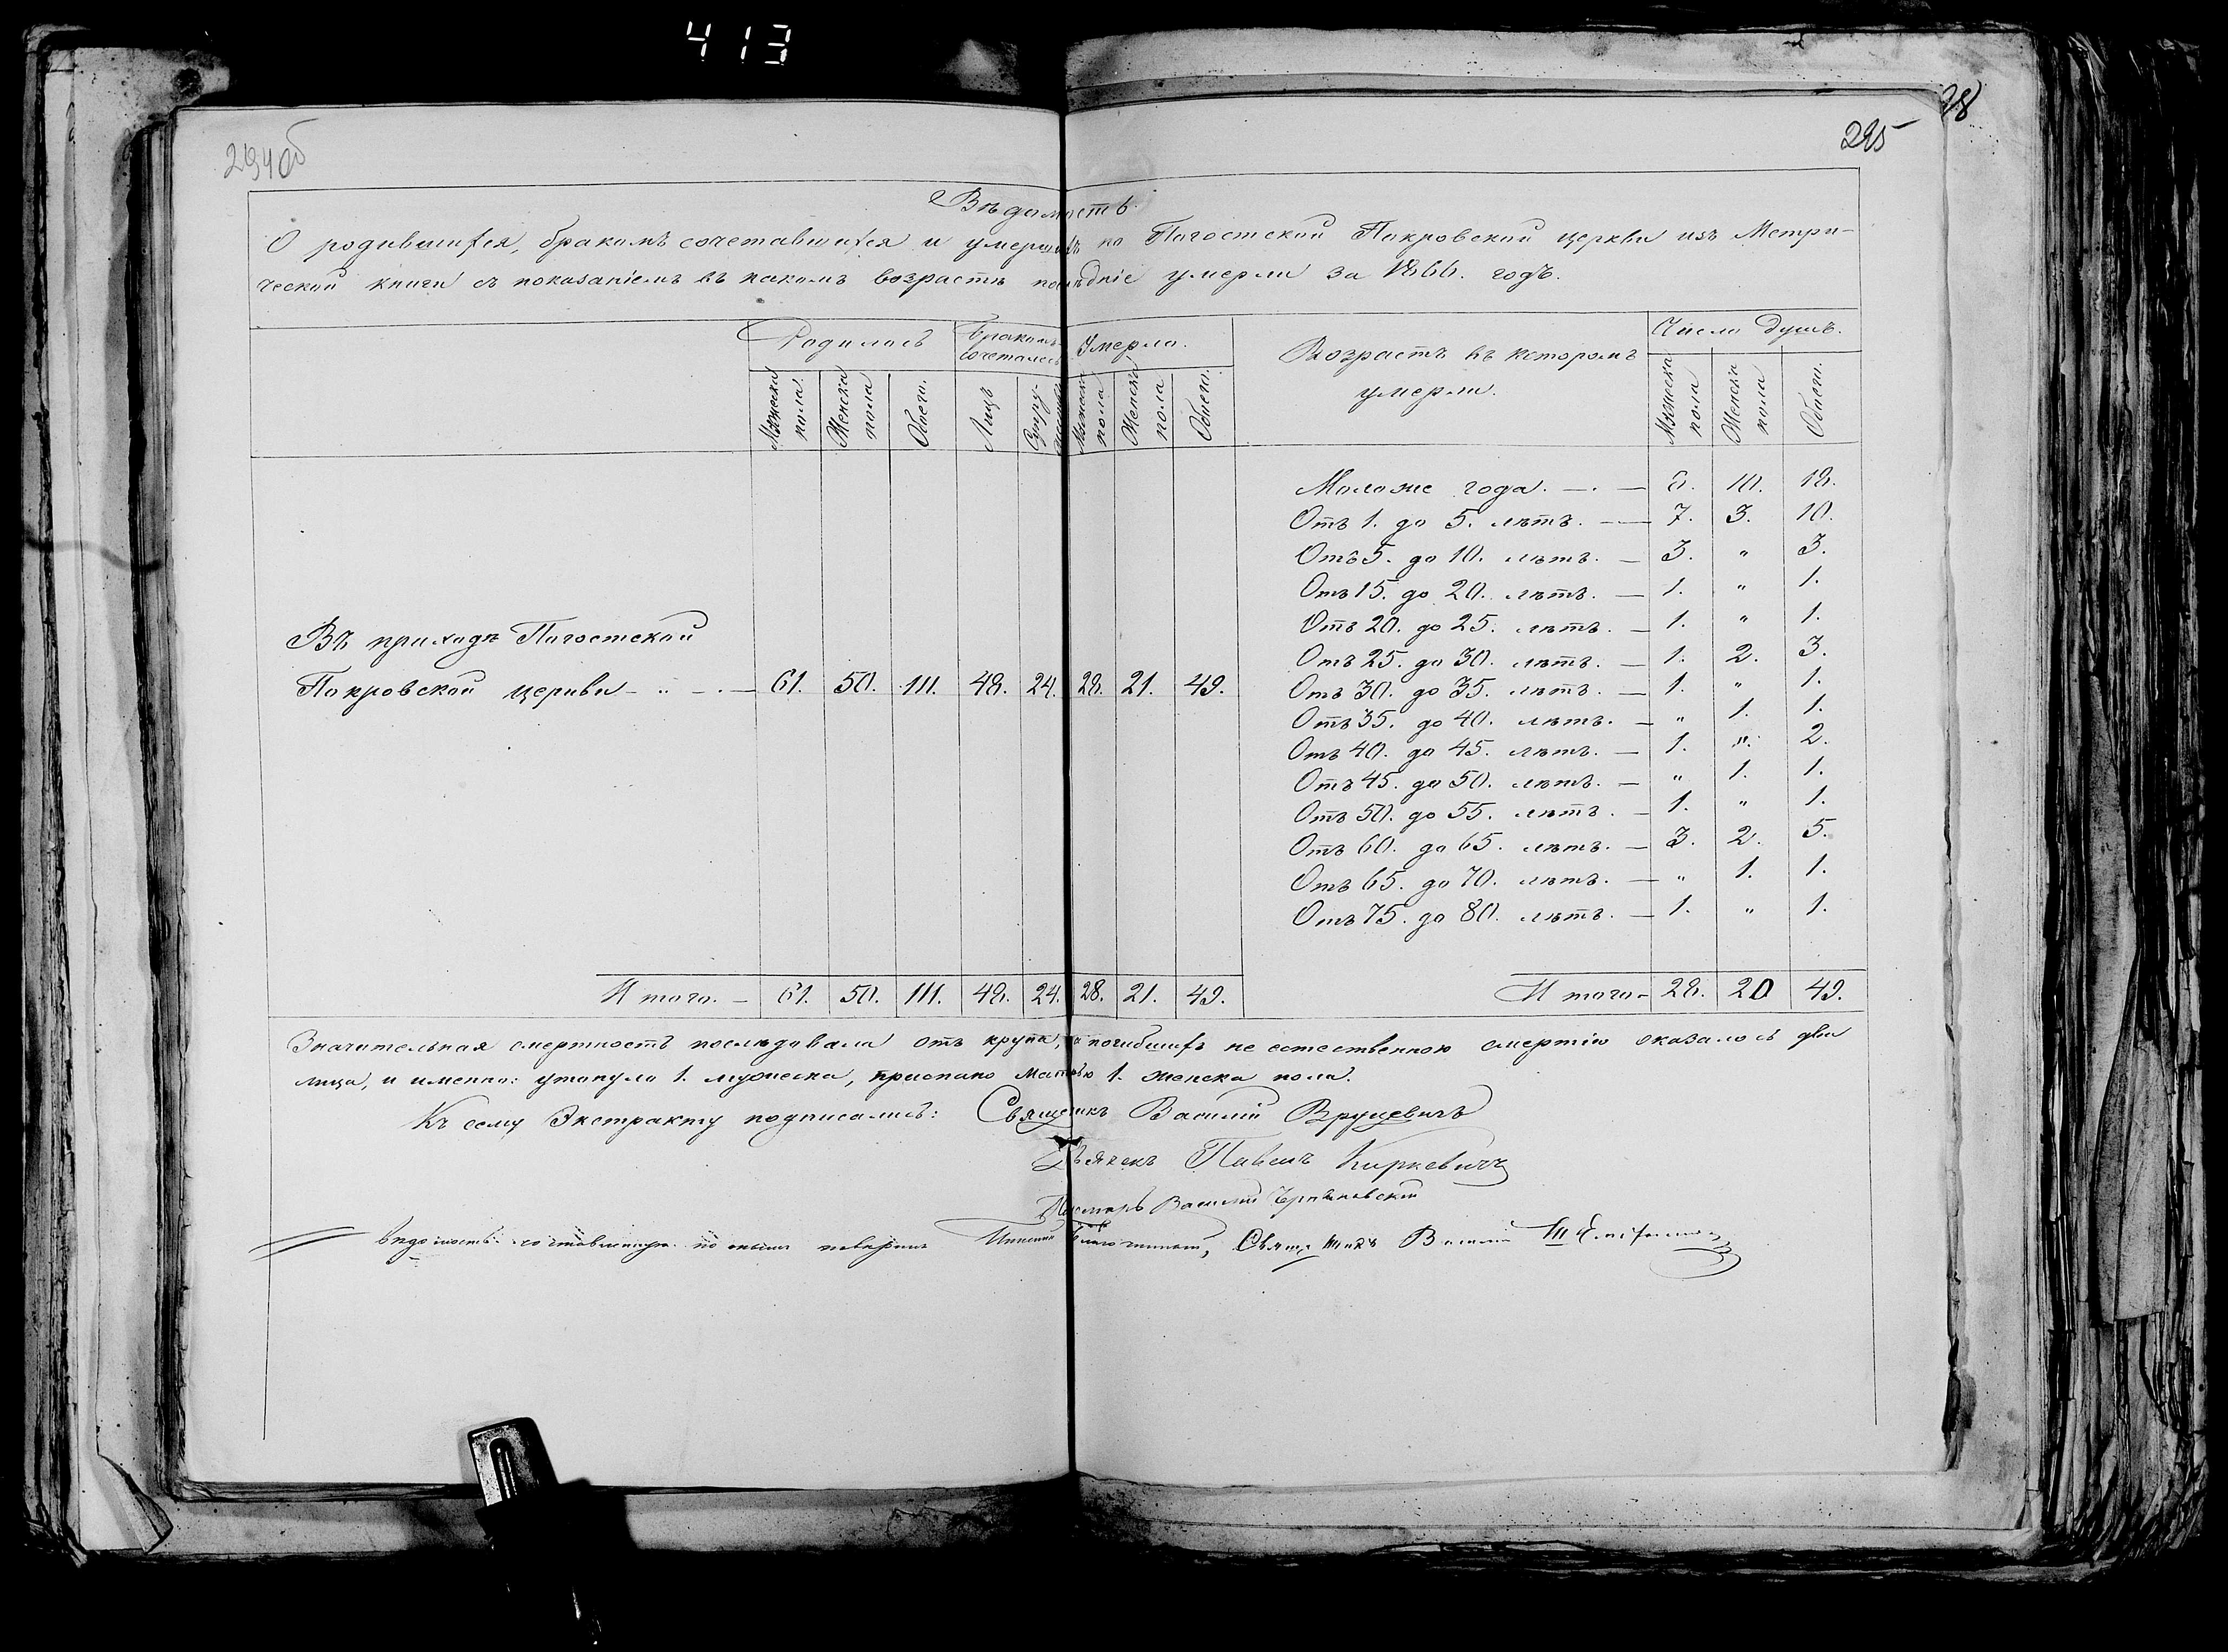 413
294об
28
295
Вѣдомость
О родившихся, бракомъ сочетавшихся и умершихъ по Погостской Покровской церкви изъ Метри-
ческой книги съ показаніемъ въ какомъ возрастѣ послѣдніе умерли за 1866. годъ.
Родилось Бракомъ сочеталось Умерло. Возрастъ въ которомъ умерли. Число душъ.
Мужеска пола. Женска пола Обоего. Лицъ Супру- Мужеска пола Женска пола Обоего. Мужеска пола Женска пола Обоего.
Въ приходѣ Погостской
Покровской церкви 61. 50. 111. 48. 24. 28. 21. 49.
Моложе года. — 8. 10. 18.
Отъ 1. до 5. лѣтъ. — 7. 3. 10.
Отъ 5. до 10. лѣтъ. — 3. „ 3.
Отъ 15. до 20. лѣтъ. — 1. „ 1.
Отъ 20. до 25. лѣтъ. — 1. „ 1.
Отъ 25. до 30. лѣтъ. — 1. 2. 3.
Отъ 30. до 35. лѣтъ. — 1. „ 1.
Отъ 35. до 40. лѣтъ. — „ 1. 1.
Отъ 40. до 45. лѣтъ. — 1. „. 2.
Отъ 45. до 50. лѣтъ. — „ 1. 1.
Отъ 50. до 55. лѣтъ. — 1. „ 1.
Отъ 60. до 65. лѣтъ. — 3. 2. 5.
Отъ 65. до 70. лѣтъ. — „ 1. 1.
Отъ 75. до 80. лѣтъ. — 1. „ 1.
Итого. — 61. 50. 111. 48. 24. 28. 21. 49.
Итого — 28. 20 49.
Значительная смертность послѣдовала отъ крупа, а погибшихъ не естественною смертію оказалось два
лица, и именно: утонуло 1. мужеска, приспано матерью 1. женска пола.
Къ сему Экстракту подписались: Священикъ Василій Вруцевичъ
Дьячекъ Павелъ Киркевичъ
Пономарь Василій
Вѣдомость по
Благочинный, Священникъ Василій